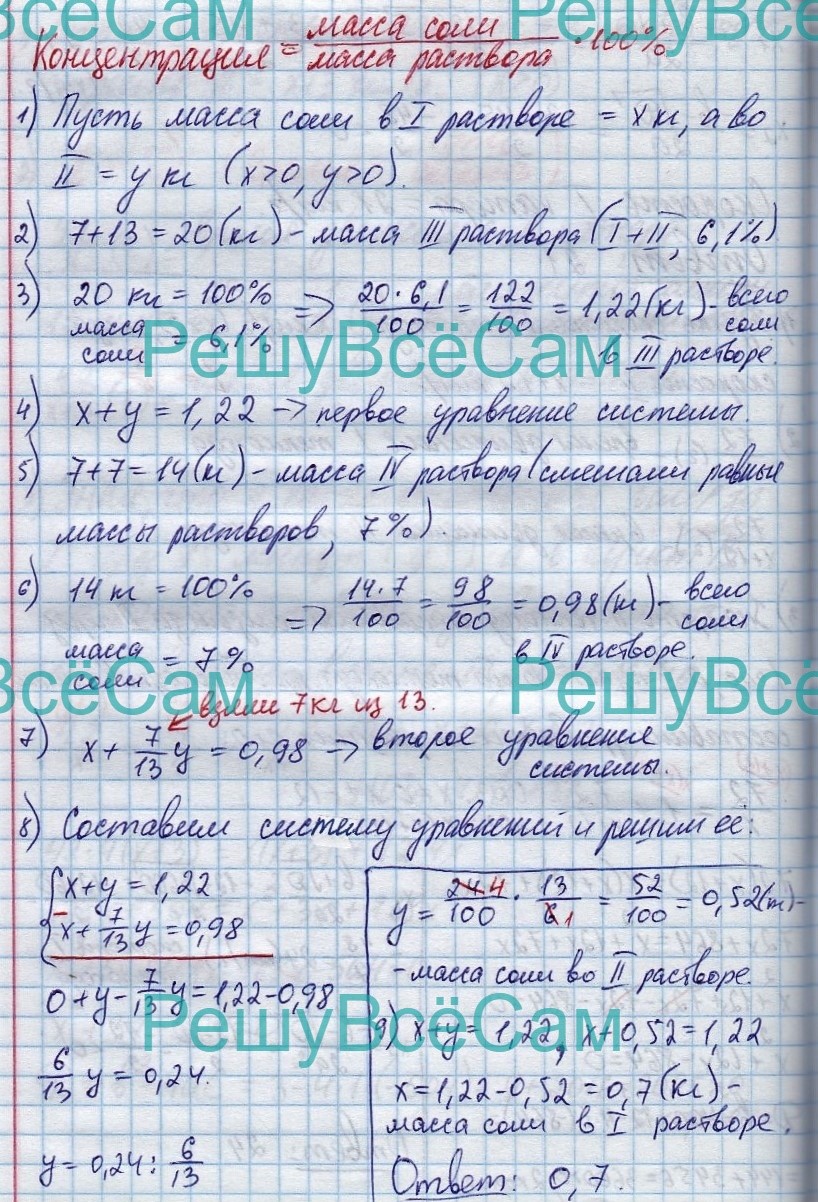 РешуВсёСам РешуВсёСам
Концентрация = масса соли / масса раствора · 100%
1) Пусть масса соли в I растворе = x кг, а во
II = y кг (x>0, y>0).
2) 7+13 = 20 (кг) – масса III раствора (I+II, 6,1%)
3) 20 кг = 100%
масса соли = 6,1%
=> 20·6,1 / 100 = 122 / 100 = 1,22 (кг) – всего соли
в III растворе.
РешуВсёСам
4) x+y = 1,22 → первое уравнение системы.
5) 7+7 = 14 (кг) – масса IV раствора (смешали равные
массы растворов, 7%).
6) 14 кг = 100%
масса соли = 7%
=> 14·7 / 100 = 98 / 100 = 0,98 (кг) – всего соли
в IV растворе.
РешуВсёСам РешуВсёСам
взяли 7 кг из 13.
7) x + 7/13 y = 0,98 → второе уравнение
системы.
8) Составим систему уравнений и решим её:
{x+y = 1,22
x + 7/13 y = 0,98
0 + y – 7/13 y = 1,22–0,98
6/13 y = 0,24.
y = 0,24 : 6/13
y = 24 4 / 100 · 13 / 6 1 = 52 / 100 = 0,52 (кг) –
– масса соли во II растворе.
РешуВсёСам
9) x+y = 1,22, x+0,52 = 1,22
x = 1,22–0,52 = 0,7 (кг) –
масса соли в I растворе.
Ответ: 0,7.